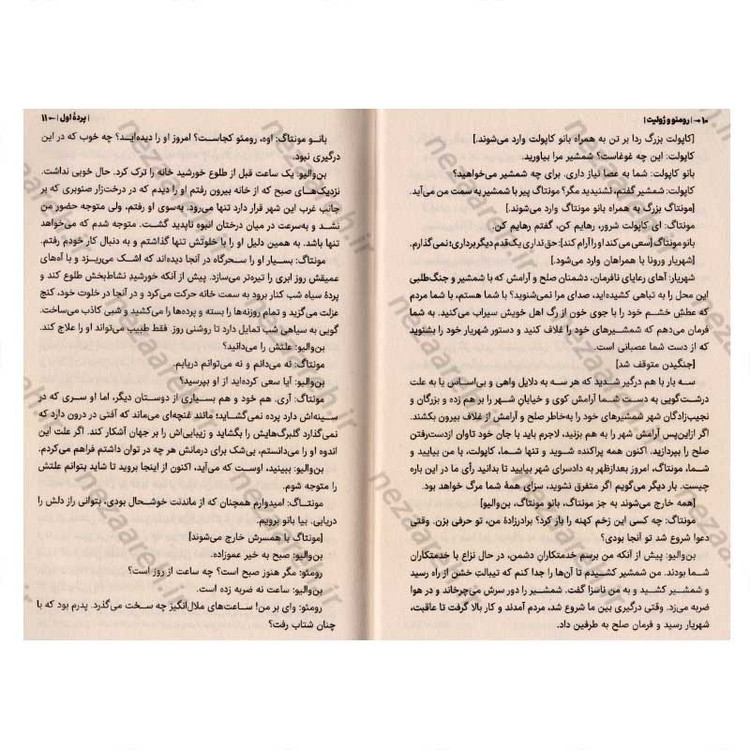 ۱۰ → | رومئو و ژولیت |
[کاپولت بزرگ ردا بر تن به همراه بانو کاپولت وارد می‌شوند.]
کاپولت: این چه غوغاست؟ شمشیر مرا بیاورید.
بانو کاپولت: شما به عصا نیاز داری. برای چه شمشیر می‌خواهید؟
کاپولت: شمشیر گفتم، نشنیدید مگر؟ مونتاگ پیر با شمشیر به سمت من می‌آید.
[مونتاگ بزرگ به همراه بانو مونتاگ وارد می‌شوند.]
مونتاگ: ای کاپولت شرور، رهایم کن، گفتم رهایم کن.
بانو مونتاگ [سعی می‌کند او را آرام کند]: حق نداری یک قدم دیگر برداری؛ نمی‌گذارم.
[شهریار ورونا با همراهان وارد می‌شود.]
شهریار: آهای رعایای نافرمان، دشمنان صلح و آرامش که با شمشیر و جنگ‌طلبی
این محل را به تباهی کشیده‌اید، صدای مرا نمی‌شنوید؟ با شما هستم، با شما مردم
که عطش خشم خود را با جوی خون از رگ اهل خویش سیراب می‌کنید. به شما
فرمان می‌دهم که شمشیرهای خود را غلاف کنید و دستور شهریار خود را بشنوید
که از دست شما عصبانی است.
[جنگیدن متوقف شد]
سه بار با هم درگیر شدید که هر سه به دلایل واهی و بی‌اساس یا به علت
درشت‌گویی به دست شما آرامش کوی و خیابان شهر را بر هم زده و بزرگان و
نجیب‌زادگان شهر شمشیرهای خود را به‌خاطر صلح و آرامش از غلاف بیرون بکشند.
اگر ازاین‌پس آرامش شهر را به هم بزنید، لاجرم باید با جان خود تاوان ازدست‌رفتن
صلح را بپردازید. اکنون همه پراکنده شوید و تنها شما، کاپولت، با من بیایید و
شما، مونتاگ، امروز بعدازظهر به دادسرای شهر بیایید تا بدانید رأی ما در این باره
چیست. بار دیگر می‌گویم اگر متفرق نشوید، سزای همهٔ شما مرگ خواهد بود.
[همه خارج می‌شوند به جز مونتاگ، بانو مونتاگ، بن‌والیو]
مونتاگ: چه کسی این زخم کهنه را باز کرد؟ برادرزادهٔ من، تو حرفی بزن. وقتی
دعوا شروع شد تو آنجا بودی؟
بن‌والیو: پیش از آنکه من برسم خدمتکاران دشمن، در حال نزاع با خدمتکاران
شما بودند. من شمشیر کشیدم تا آن‌ها را جدا کنم که تیبالت خشن از راه رسید
و شمشیر کشید و به من ناسزا گفت. شمشیر را دور سرش می‌چرخاند و در هوا
ضربه می‌زد. وقتی درگیری بین ما شروع شد، مردم آمدند و کار بالا گرفت تا عاقبت،
شهریار رسید و فرمان صلح به طرفین داد.
| پردهٔ اول | ← ۱۱
بانو مونتاگ: اوه، رومئو کجاست؟ امروز او را دیده‌ایـد؟ چه خوب که در این
درگیری نبود.
بن‌والیو: یک ساعت قبل از طلوع خورشید خانه را ترک کرد. حال خوبی نداشت.
نزدیک‌های صبح که از خانه بیرون رفتم او را دیدم که در درخت‌زار صنوبری که بر
جانب غرب این شهر قرار دارد تنها می‌رود. به‌سوی او رفتم، ولی متوجه حضور من
نشد و به‌سرعت در میان درختان انبوه ناپدید گشت. متوجه شدم که می‌خواهد
تنها باشد. به همین دلیل او را با خلوتش تنها گذاشتم و به دنبال کار خودم رفتم.
مونتاگ: بسیار او را سحرگاه در آنجا دیده‌اند که اشک می‌ریزد و با آه‌های
عمیقش روز ابری را تیره‌تر می‌سازد. پیش از آنکه خورشید نشاط‌بخش طلوع کند و
پردهٔ سیاه شب کنار برود به سمت خانه حرکت می‌کرد و در آنجا در خلوت خود، کنج
عزلت می‌گزید و تمام روزنه‌ها را بسته و پرده‌ها را می‌کشید و شبی کاذب می‌ساخت.
گویی به سیاهی شب تمایل دارد تا روشنی روز فقط طبیب می‌تواند او را علاج کند.
بن‌والیو: علتش را می‌دانید؟
مونتاگ: نه می‌دانم و نه می‌توانم دریابم.
بن‌والیو: آیا سعی کرده‌اید از او بپرسید؟
مونتاگ: آری. هم خود و هم بسیاری از دوستان دیگر، اما او سری که در
سینه‌اش دارد پرده نمی‌گشاید؛ مانند غنچه‌ای می‌ماند که آفتی در درون دارد که
نمی‌گذارد گلبرگ‌هایش را بگشاید و زیبایی‌اش را بر جهان آشکار کند. اگر علت این
اندوه او را می‌دانستم، بی‌شک برای درمانش هر چه در توان داشتم فراهم می‌کردم.
بن‌والیو: ببینید، اوست که می‌آید، اکنون از اینجا بروید تا شاید بتوانم علتش
را متوجه شوم.
مونتاگ: امیدوارم همچنان که از ماندنت خوشحال بودی، بتوانی راز دلش را
دریابی. بیا بانو برویم.
[مونتاگ با همسرش خارج می‌شوند]
بن‌والیو: صبح به خیر عموزاده.
رومئو: مگر هنوز صبح است؟ چه ساعت از روز است؟
بن‌والیو: ساعت نه ضربه زده است.
رومئو: وای بر من! ساعت‌های ملال‌انگیز چه سخت می‌گذرد. پدرم بود که با
چنان شتاب رفت؟
nezaareh.ir